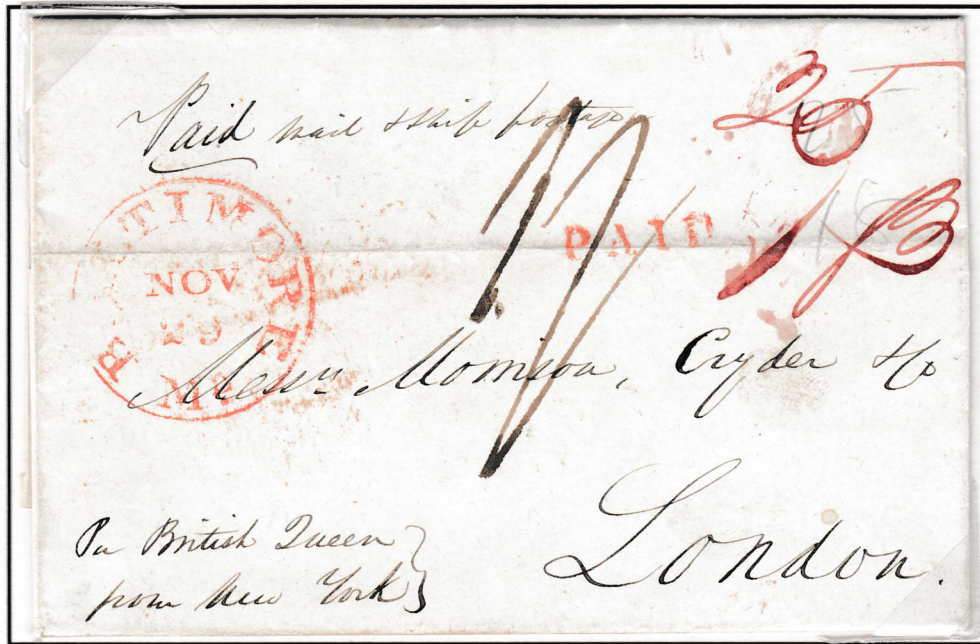 Paid mail & ship postage
25
18
PAID
BALTIMORE
NOV
29
MD.
Messrs Morrison, Cryder & Co
London.
Per British Queen
from New York